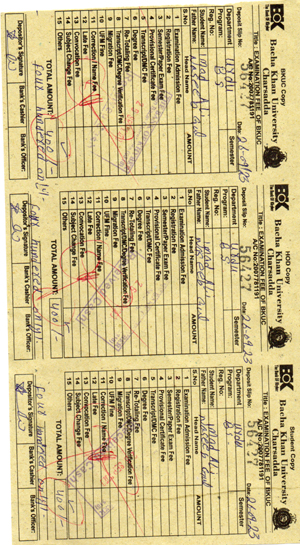 BKUC Copy
Bacha Khan University
Charsadda
Title: EXAMINATION FEE OF BKUC
A/C No: 2007781191
Deposit Slip No.
Date
Department Urdu
Semester
Program: BS
Reg. No:
Student Name:
Father Name:
S.No Head Name AMOUNT
1 Examination Admission
2 Registration Fee
3 Semester/Paper Exam Fee
4 Provisional Certificate Fee
5 Transcript/DMC
6 Degree Fee
7 Re-Totaling Fee
8 Transcript/DMC/Degree Verification Fee
9 Migration Fee
10 UFM Fee
11 Correction / Name Fee
12 Late Fee
13 Convocation Fee
14 Subject Change Fee
15 Others
TOTAL AMOUNT: 400/-
Four hundered only
Depositor's Signature Bank's Cashier Bank's Officer:
HOD Copy
Bacha Khan University
Charsadda
Title: EXAMINATION FEE OF BKUC
A/C No: 2007781191
Deposit Slip No. 56437
Date 21.09.23
Department Urdu
Semester
Program: BS
Reg. No:
Student Name:
Father Name:
S.No Head Name AMOUNT
1 Examination Admission
2 Registration Fee
3 Semester/Paper Exam Fee
4 Provisional Certificate Fee
5 Transcript/DMC
6 Degree Fee
7 Re-Totaling Fee
8 Transcript/DMC/Degree Verification Fee
9 Migration Fee
10 UFM Fee
11 Correction / Name Fee
12 Late Fee
13 Convocation Fee
14 Subject Change Fee
15 Others
TOTAL AMOUNT: 400/-
Four hundered only
Depositor's Signature Bank's Cashier Bank's Officer:
Student Copy
Bacha Khan University
Charsadda
Title: EXAMINATION FEE OF BKUC
A/C No: 2007781191
Deposit Slip No. 56437
Date 21.09.23
Department Urdu
Semester
Program: BS
Reg. No:
Student Name:
Father Name:
S.No Head Name AMOUNT
1 Examination Admission
2 Registration Fee
3 Semester/Paper Exam Fee
4 Provisional Certificate Fee
5 Transcript/DMC
6 Degree Fee
7 Re-Totaling Fee
8 Transcript/DMC/Degree Verification Fee
9 Migration Fee
10 UFM Fee
11 Correction / Name Fee
12 Late Fee
13 Convocation Fee
14 Subject Change Fee
15 Others
TOTAL AMOUNT: 400/-
Four hundered only
Depositor's Signature Bank's Cashier Bank's Officer: